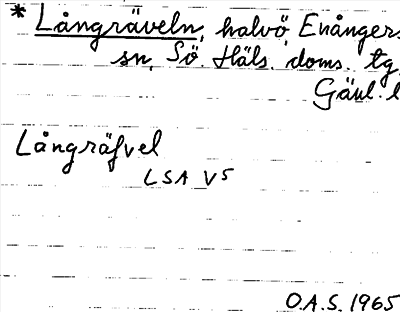 * Långräveln, halvö, Enångers
sn, Sö. Häls. doms. tg,
Gävl. l
Långräfvel
LSA V5
O.A.S. 1965